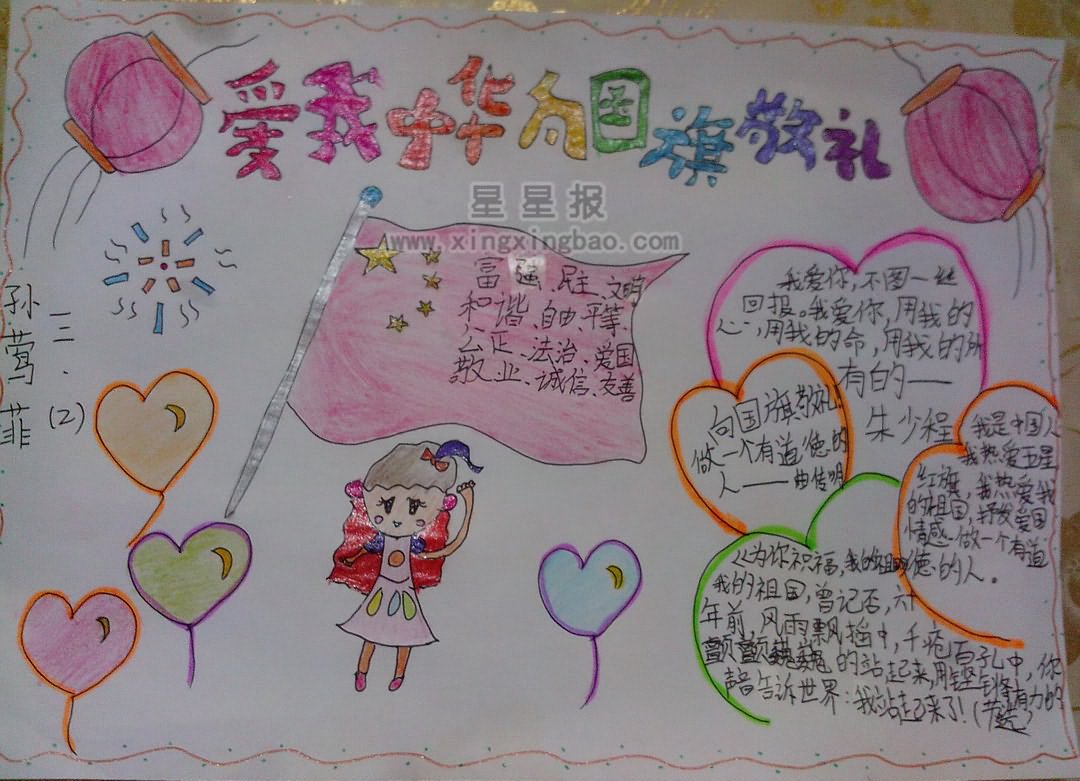 爱我中华向国旗敬礼
星星报
www.xingxingbao.com
富强、民主、文明
和谐、自由、平等、
公正、法治、爱国
敬业、诚信、友善
孙莺菲
三.(2)
我爱你,不图一丝
回报。我爱你,用我的
心,用我的命,用我的所
有白的——
朱少程
向国旗敬礼,
做一个有道德的
人——曲传明
我是中国人
我热爱五星
红旗,我热爱我
的祖国,抒发爱国
情感做一个有道
德的人。
《为你祝福,我的祖国
我的祖国,曾记否,六十
年前,风雨飘摇中,千疮百孔中,你
颤颤巍巍的站起来,用铿锵有力的
声音告诉世界:我站起来了!(节选)